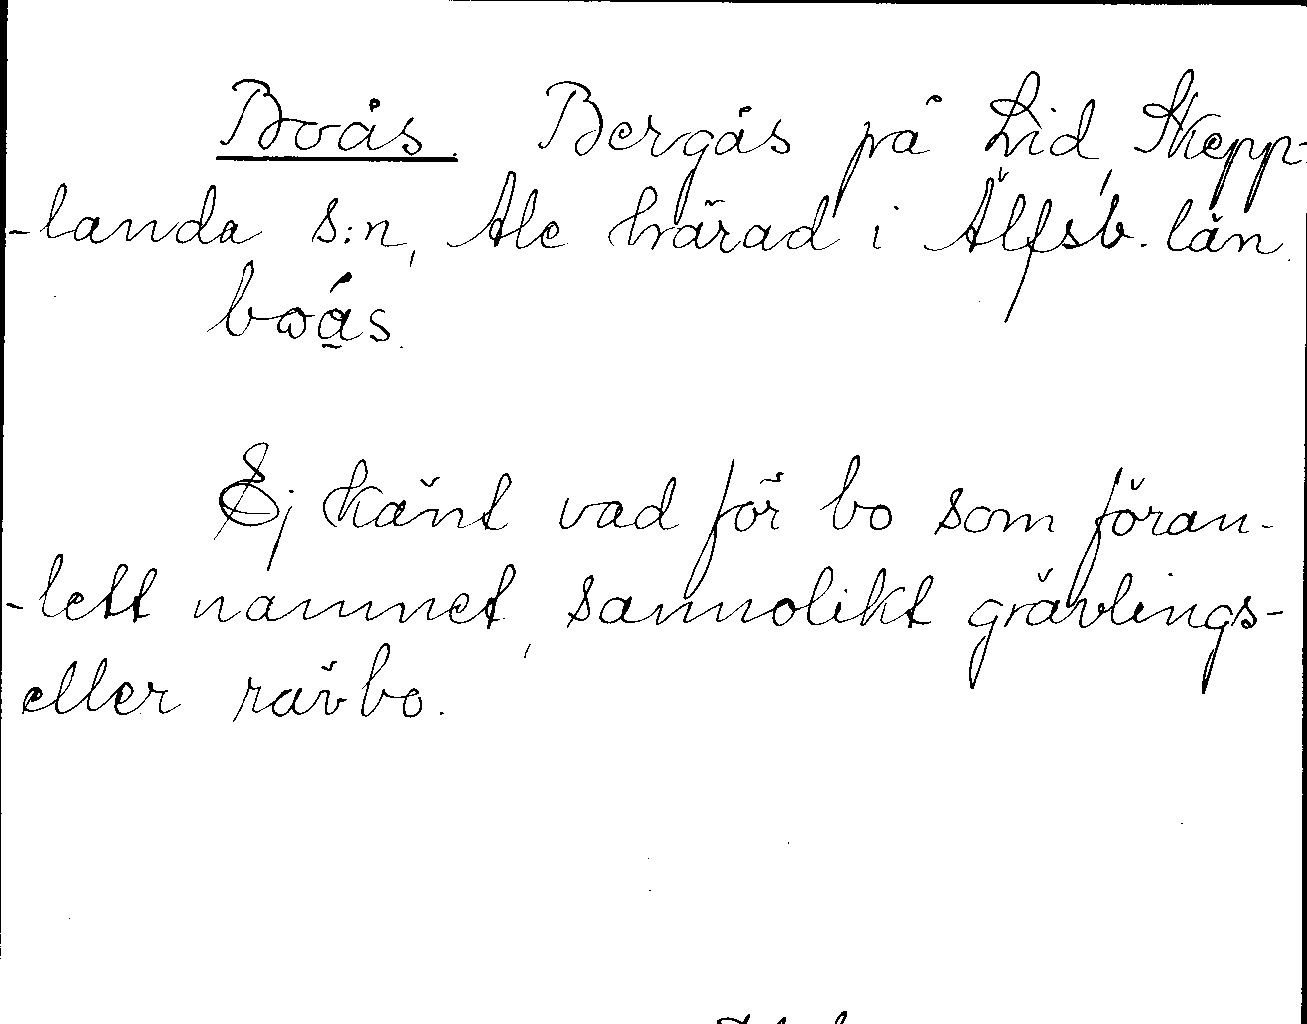 Boås. Bergås på Lid, Skepp-
-landa s:n, Ale härad i Älfsb. län.
boås.
Ej känt vad för bo som föran-
-lett namnet, sannolikt grävlings-
eller rävbo.